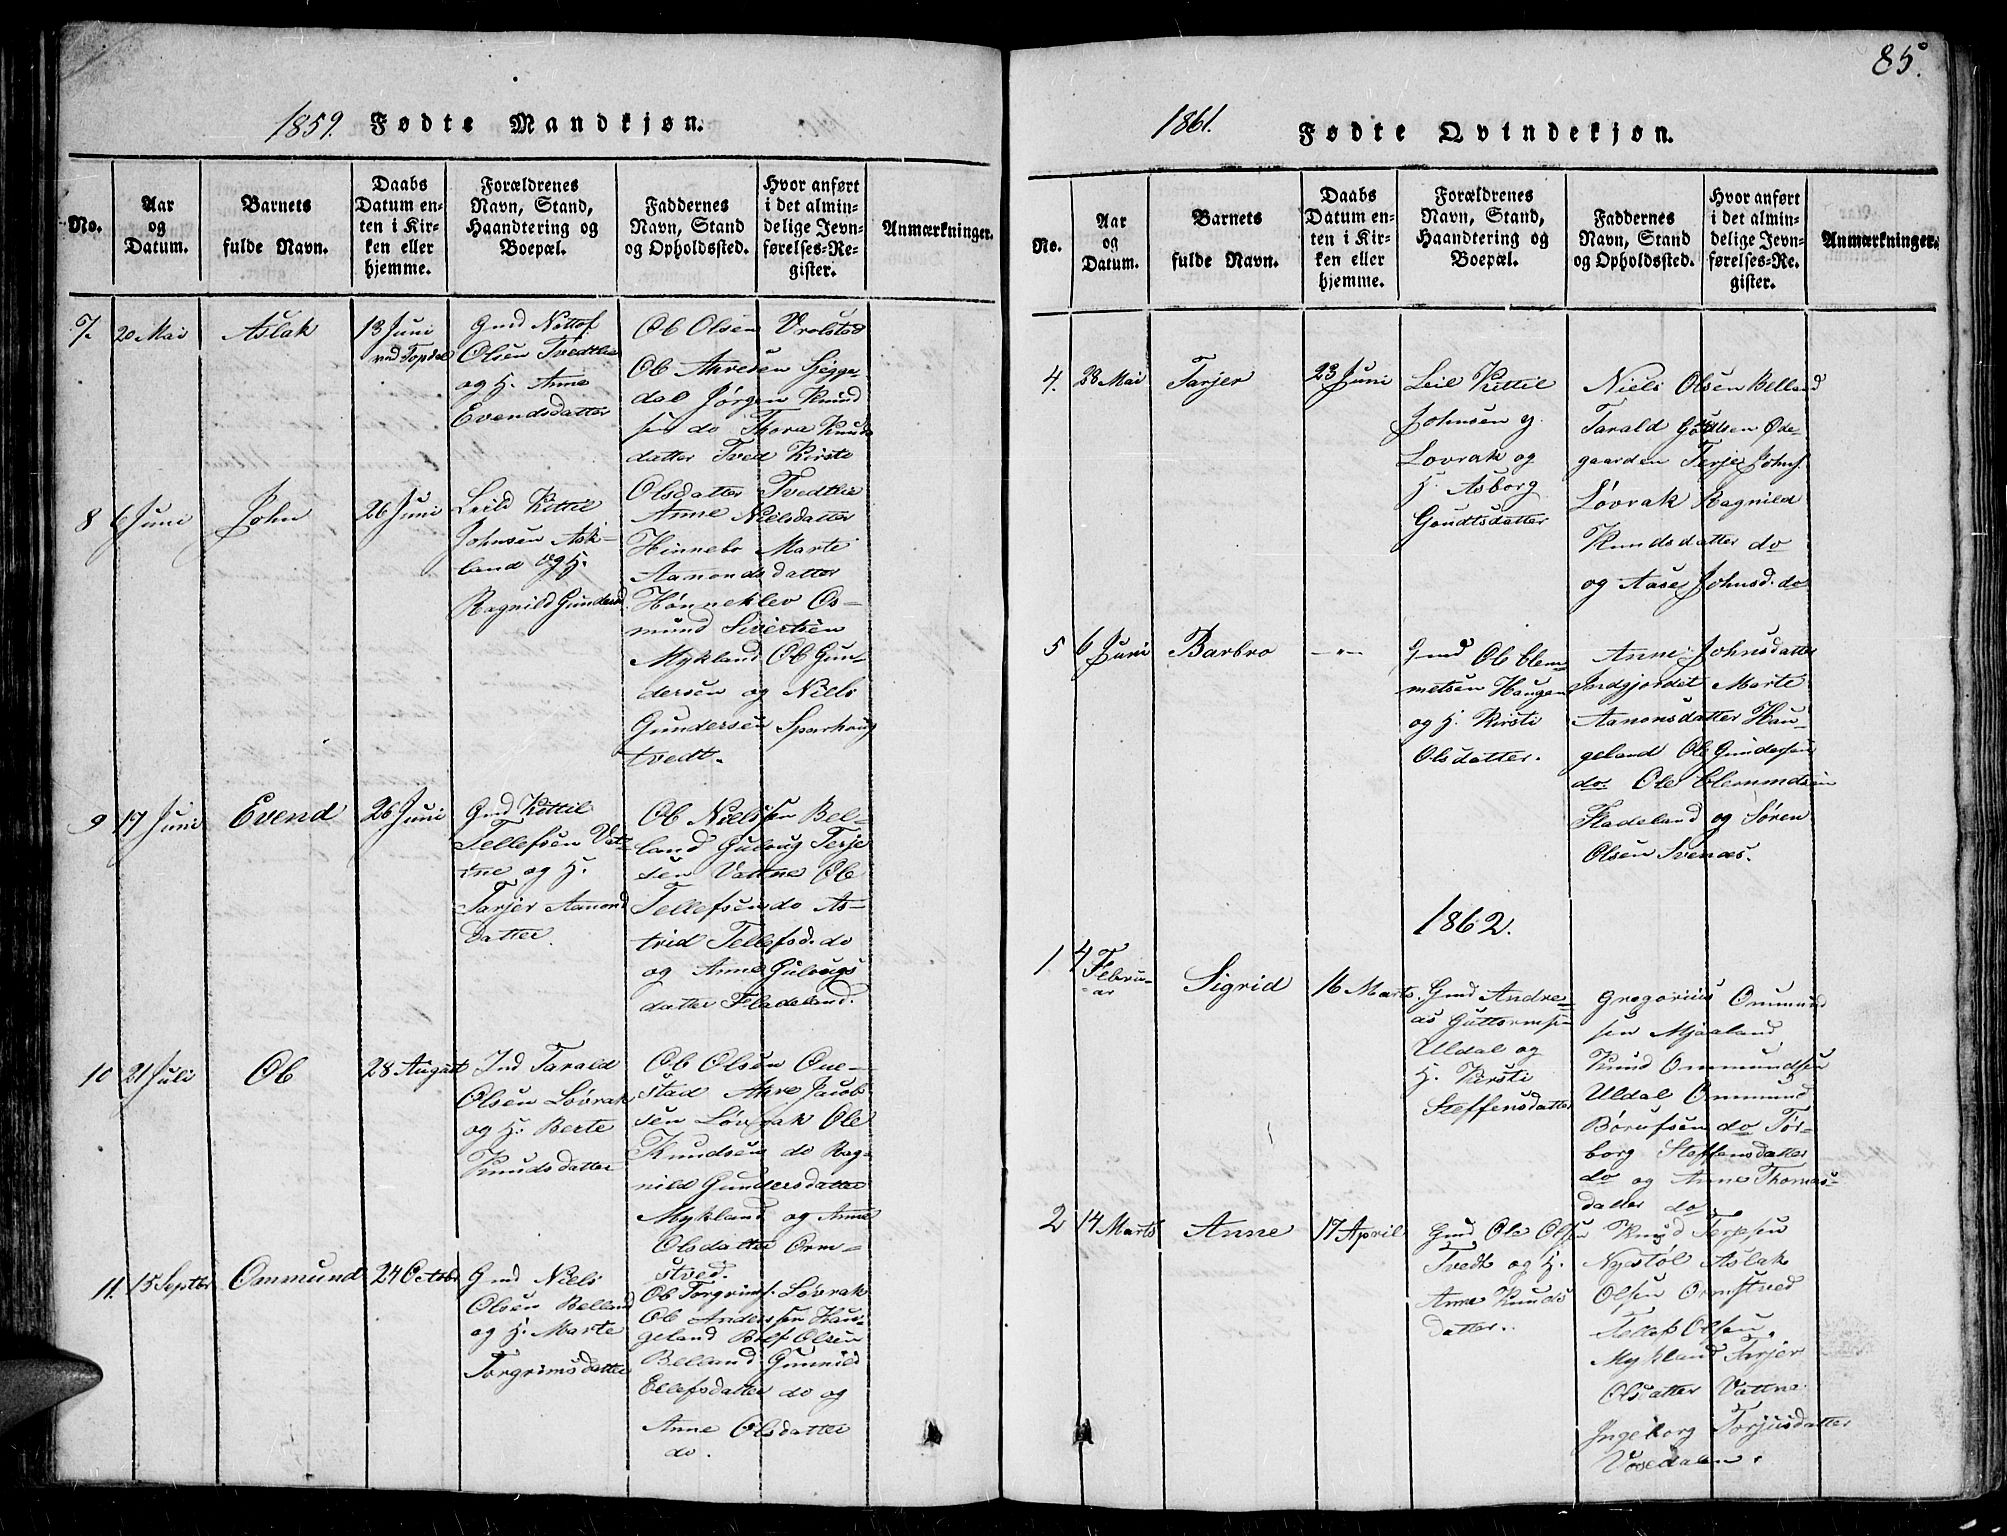 85.
1859. Fødte Mandkjøn.
No.
Aar
og
Datum.
Barnets
fulde Navn.
Daabs
Datum en-
ten i Kir-
ken eller
hjemme.
Forældrenes
Navn, Stand,
Haandtering og
Boepæl.
Faddernes
Navn, Stand
og Opholdssted.
Hvor anført
i det almin-
delige Jevn-
førelses-Re-
gister.
Anmærkninger.
7.
20 Mai
Aslak
13 Juni
ved Topdal
Gmd Nottof
Olsen Tvedtlie
og H. Anne
Evendsdatter
Ob Olsen Vrolstad
Ob Ahresen Hegge-
dal Jørgen Knud
sen do Thora Knuds
datter Tved Kirsti
Olsdatter Tvedtlie
8
6 Juni
John
26 Juni
Leild Kittil
Johnsen Ask-
land og H.
Ragnild Gundersd
Anne Nielsdatter
Hinnebo Marte
Aamonds datter
Hønneklev Os-
mund Sivertsen
Mykland Ob Gun-
dersen og Niels
Gundersen Sparhoug
tvedt.
9
17 Juni
Evend
26 Juni
Gmd Kittil
Tellefsen Vat-
tne og H.
Tarjer Aamond
datter
Ob Nielssen Bel-
land Guloug Terje
sen Vattne Ob
Tellefsen do As-
trid Tellefsd. do
og Anne Gulougs
datter Fladeland.
10
21 Juli
Ob
28 August
Ind Tarald
Olsen Lovrak
og H. Berte
Knudsdatter
Ob Olsen Ove-
stad Ahre Jacob
sen Løvrak Ole
Knudsen do Rag-
nild Gundersdatter
Mykland og Anne
Olsdatter Orm-
stved.
11.
15 Septbr
Ommund
24 Octobr
Gmd Niels
Olsen Belland
og H. Marte
Torgrimsdatter
Ob Torgrims. Løvrak
Ob Anderssen Hau-
geland Olsen
Belland Gunnild
Ellefsdatter do og
Anne Olsdatter
do.
1861. Fødte Qvindekjøn.
No.
Aar
og
Datum.
Barnets
fulde Navn.
Daabs
Datum en-
ten i Kir-
ken eller
hjemme.
Forældrenes
Navn, Stand,
Haandtering og
Boepæl.
Faddernes
Navn, Stand
og Opholdssted.
Hvor anført
i det almin-
delige Jevn-
førelses-Re-
gister.
Anmærkninger.
4.
28 Mai
Tarjer
23 Juni
Leil Kittil
Johnsen y.
Lovrak og
H. Asborg
Goudtsdatter
Niels Olsen Belland
Tarald Olsen Øde-
gaarden Terje Johns.
Løvrak Ragnild
Knudsdatter do
og Aase Johnsd. do
5
6 Juni
Barbro
— " —
Gmd Ob Clem-
metsen Haugen
og H. Kirsti
Olsdatter.
Anne Johnsdatter
Indgjordet Marte
Aanonsdatter Hau-
geland Ole Gundersen
do. Ole Clemmetsen
Fladeland og Søren
Olsen Svenæs.
1862.
1.
4
Febru-
ar
Sigrid
16 Marts
Gmd Andre-
as Guttormsen
Uldal og
H. Kirsti
Steffensdatter
Gregorius Ommund
sen Mjaaland
Knud Ommundsen
Uldal Ommund
Børufsen do Tor-
borg Steffensdatter
do og Anne Thomas-
datter do
2
14 Marts
Anne
17 April
Gmd Ole Olsen
Tvedt og H.
Anne Knuds
datter.
Knud Terjesen
Nystøl Aslak
Olsen Ormstved
Tellef Olsen
Mykland Tarjer
Olsdatter Vattne
Ingeborg Torjusdatter
Vosedalen.